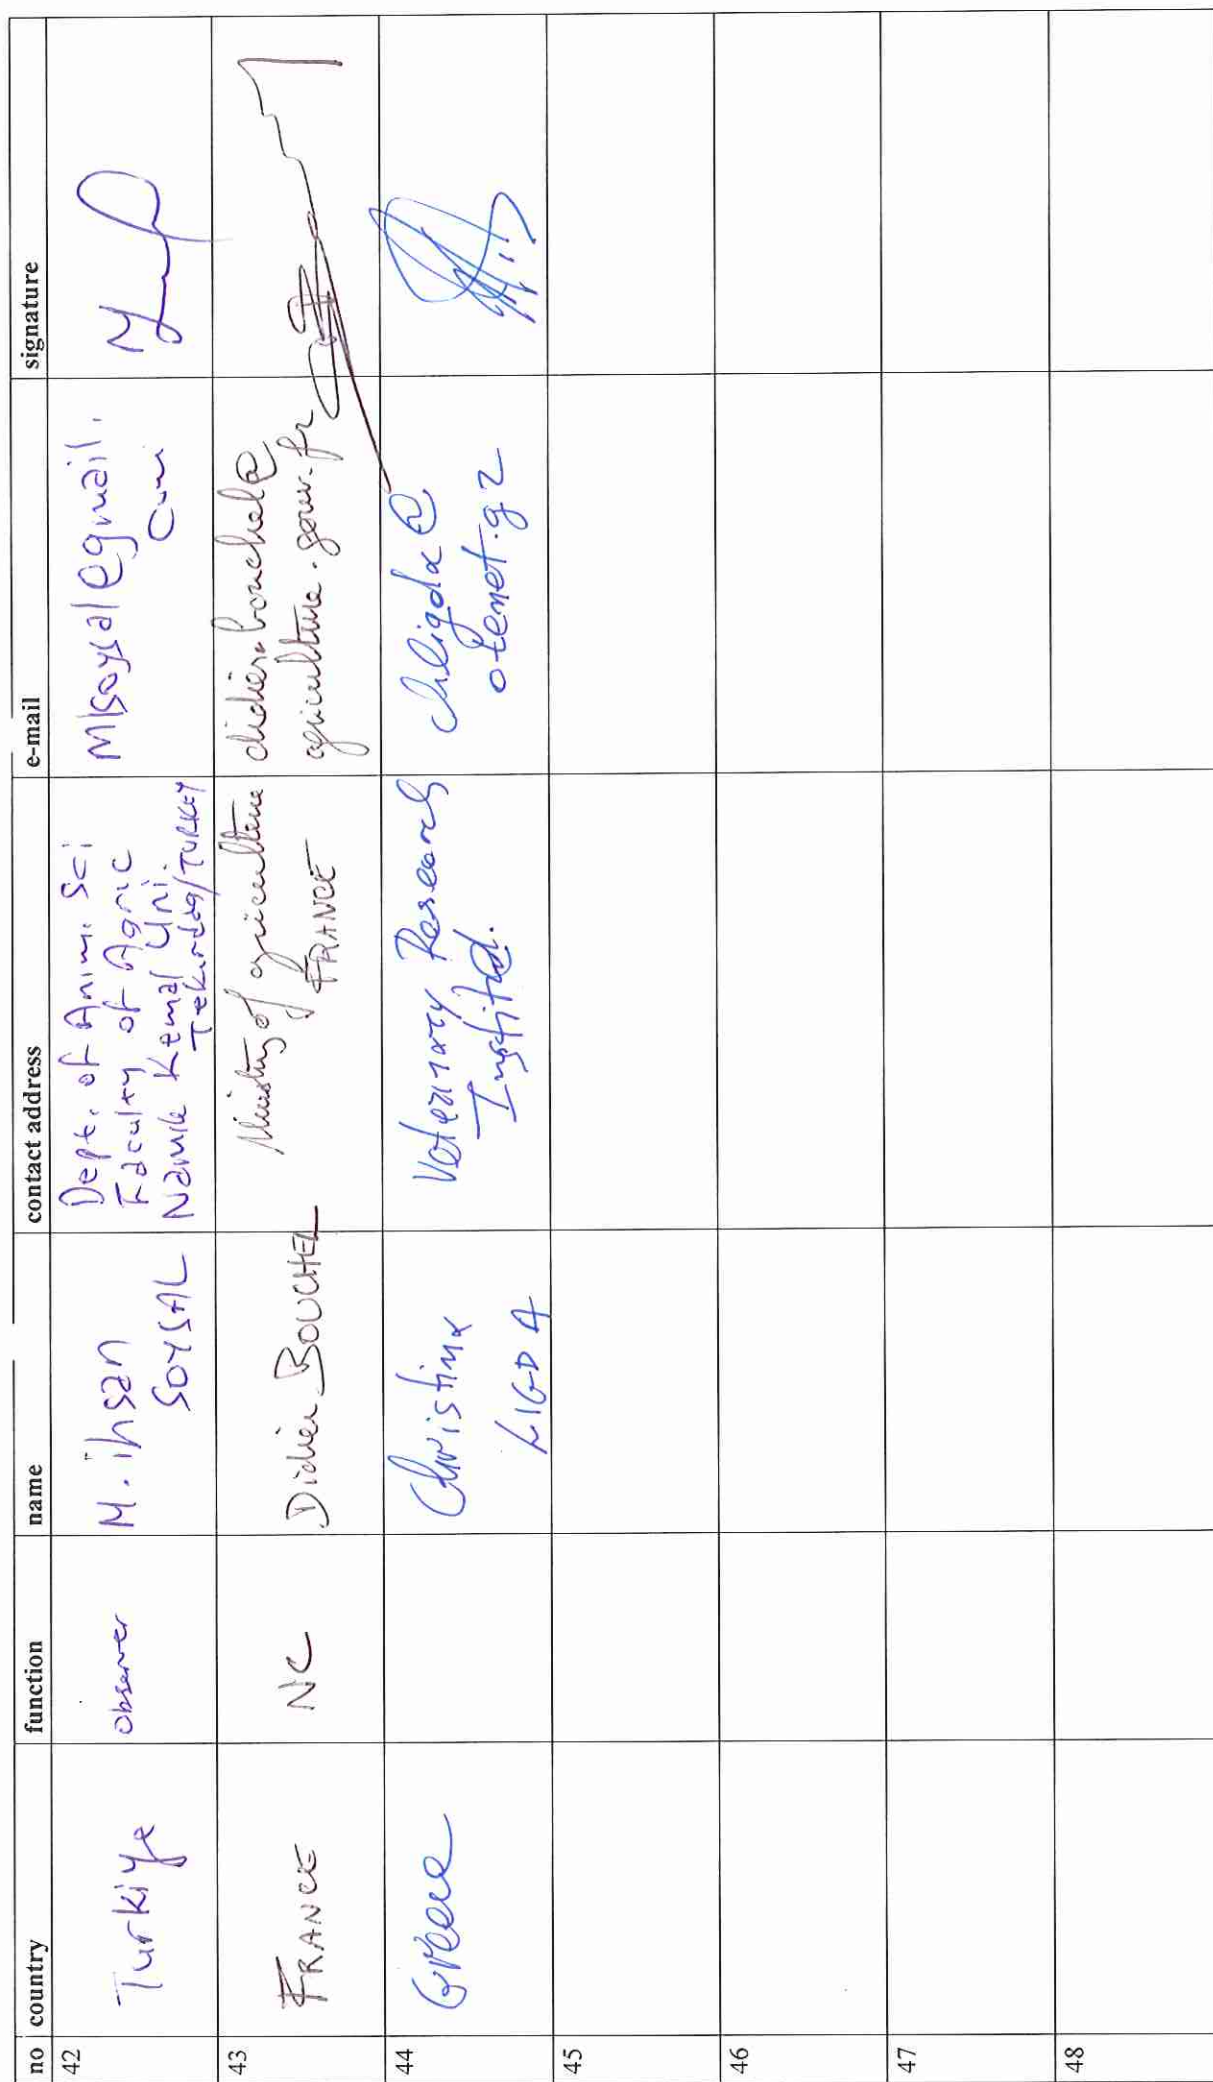 no country function name contact address e-mail signature
42 Turkiye observer M. ihsan SOYSAL Dept. of Anim. Sci
Faculty of Agric
Namık Kemal Uni.
Tekirdağ/TURKEY
misoysal@gmail.
com
43 FRANCE NC Didier BOUCHEL Ministry of agriculture
FRANCE
didier.bouchel@
agriculture.gouv.fr
44 Greece Christina
LIGDA
Veterinary Research
Institut.
chligda@
otenet.gr
45
46
47
48